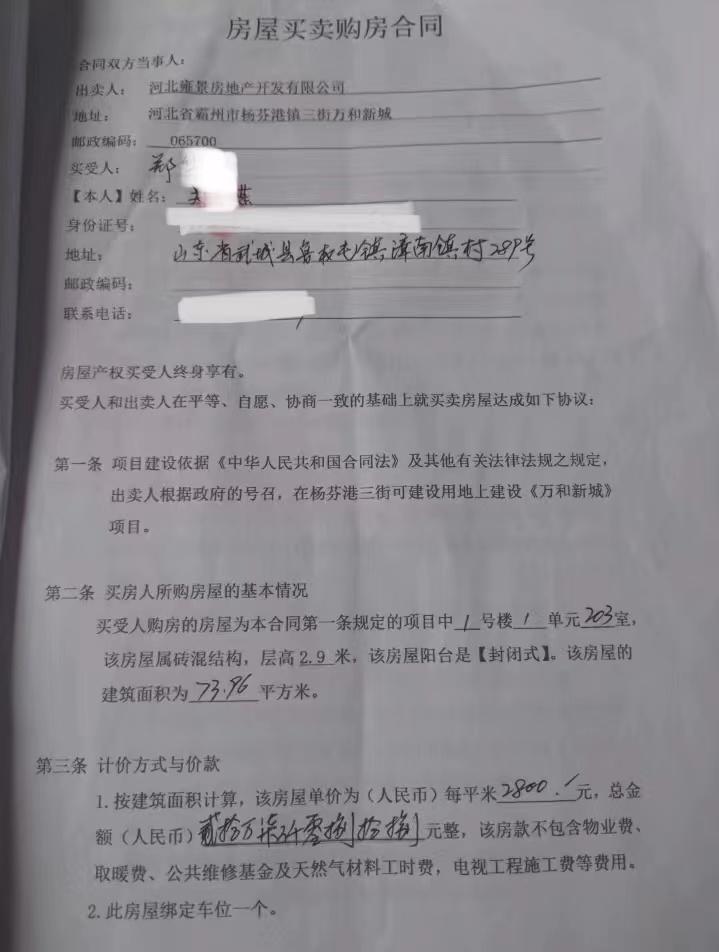 房屋买卖购房合同
合同双方当事人：
出卖人： 河北雍景房地产开发有限公司
地址： 河北省霸州市杨芬港镇三街万和新城
邮政编码： 065700
买受人： 郑
【本人】姓名：
身份证号：
地址： 山东省武城县鲁权屯镇漳南镇村289号
邮政编码：
联系电话：
房屋产权买受人终身享有。
买受人和出卖人在平等、自愿、协商一致的基础上就买卖房屋达成如下协议：
第一条 项目建设依据《中华人民共和国合同法》及其他有关法律法规之规定，
出卖人根据政府的号召，在杨芬港三街可建设用地上建设《万和新城》
项目。
第二条 买房人所购房屋的基本情况
买受人购房的房屋为本合同第一条规定的项目中 1 号楼 1 单元 203 室，
该房屋属砖混结构，层高 2.9 米，该房屋阳台是【封闭式】。该房屋的
建筑面积为 73.96 平方米。
第三条 计价方式与价款
1.按建筑面积计算，该房屋单价为（人民币）每平米 2800. 元，总金
额（人民币）贰拾万柒仟零捌拾捌元整，该房款不包含物业费、
取暖费、公共维修基金及天然气材料工时费，电视工程施工费等费用。
2.此房屋绑定车位一个。